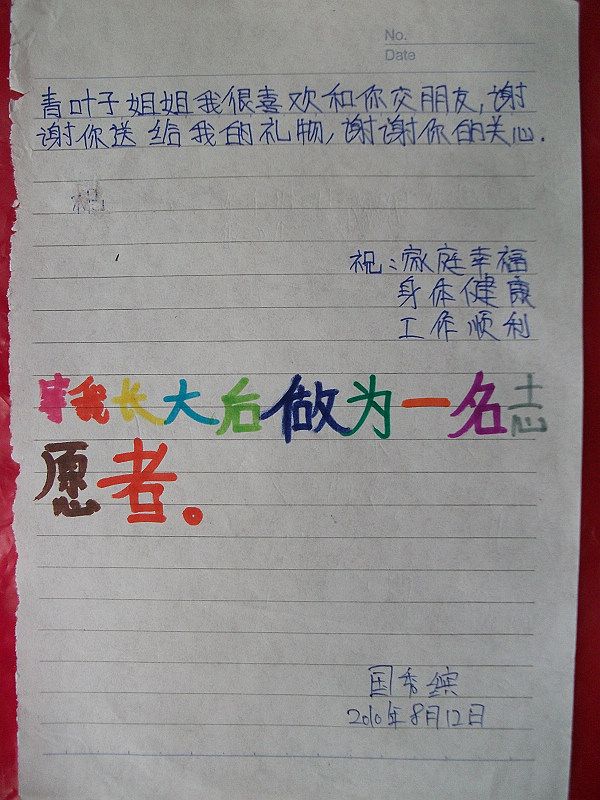 No.
Date
青叶子姐姐我很喜欢和你交朋友,谢
谢你送给我的礼物,谢谢你的关心.
祝:家庭幸福
身体健康
工作顺利
我长大后做为一名志
愿者。
国秀缤
2010年8月12日